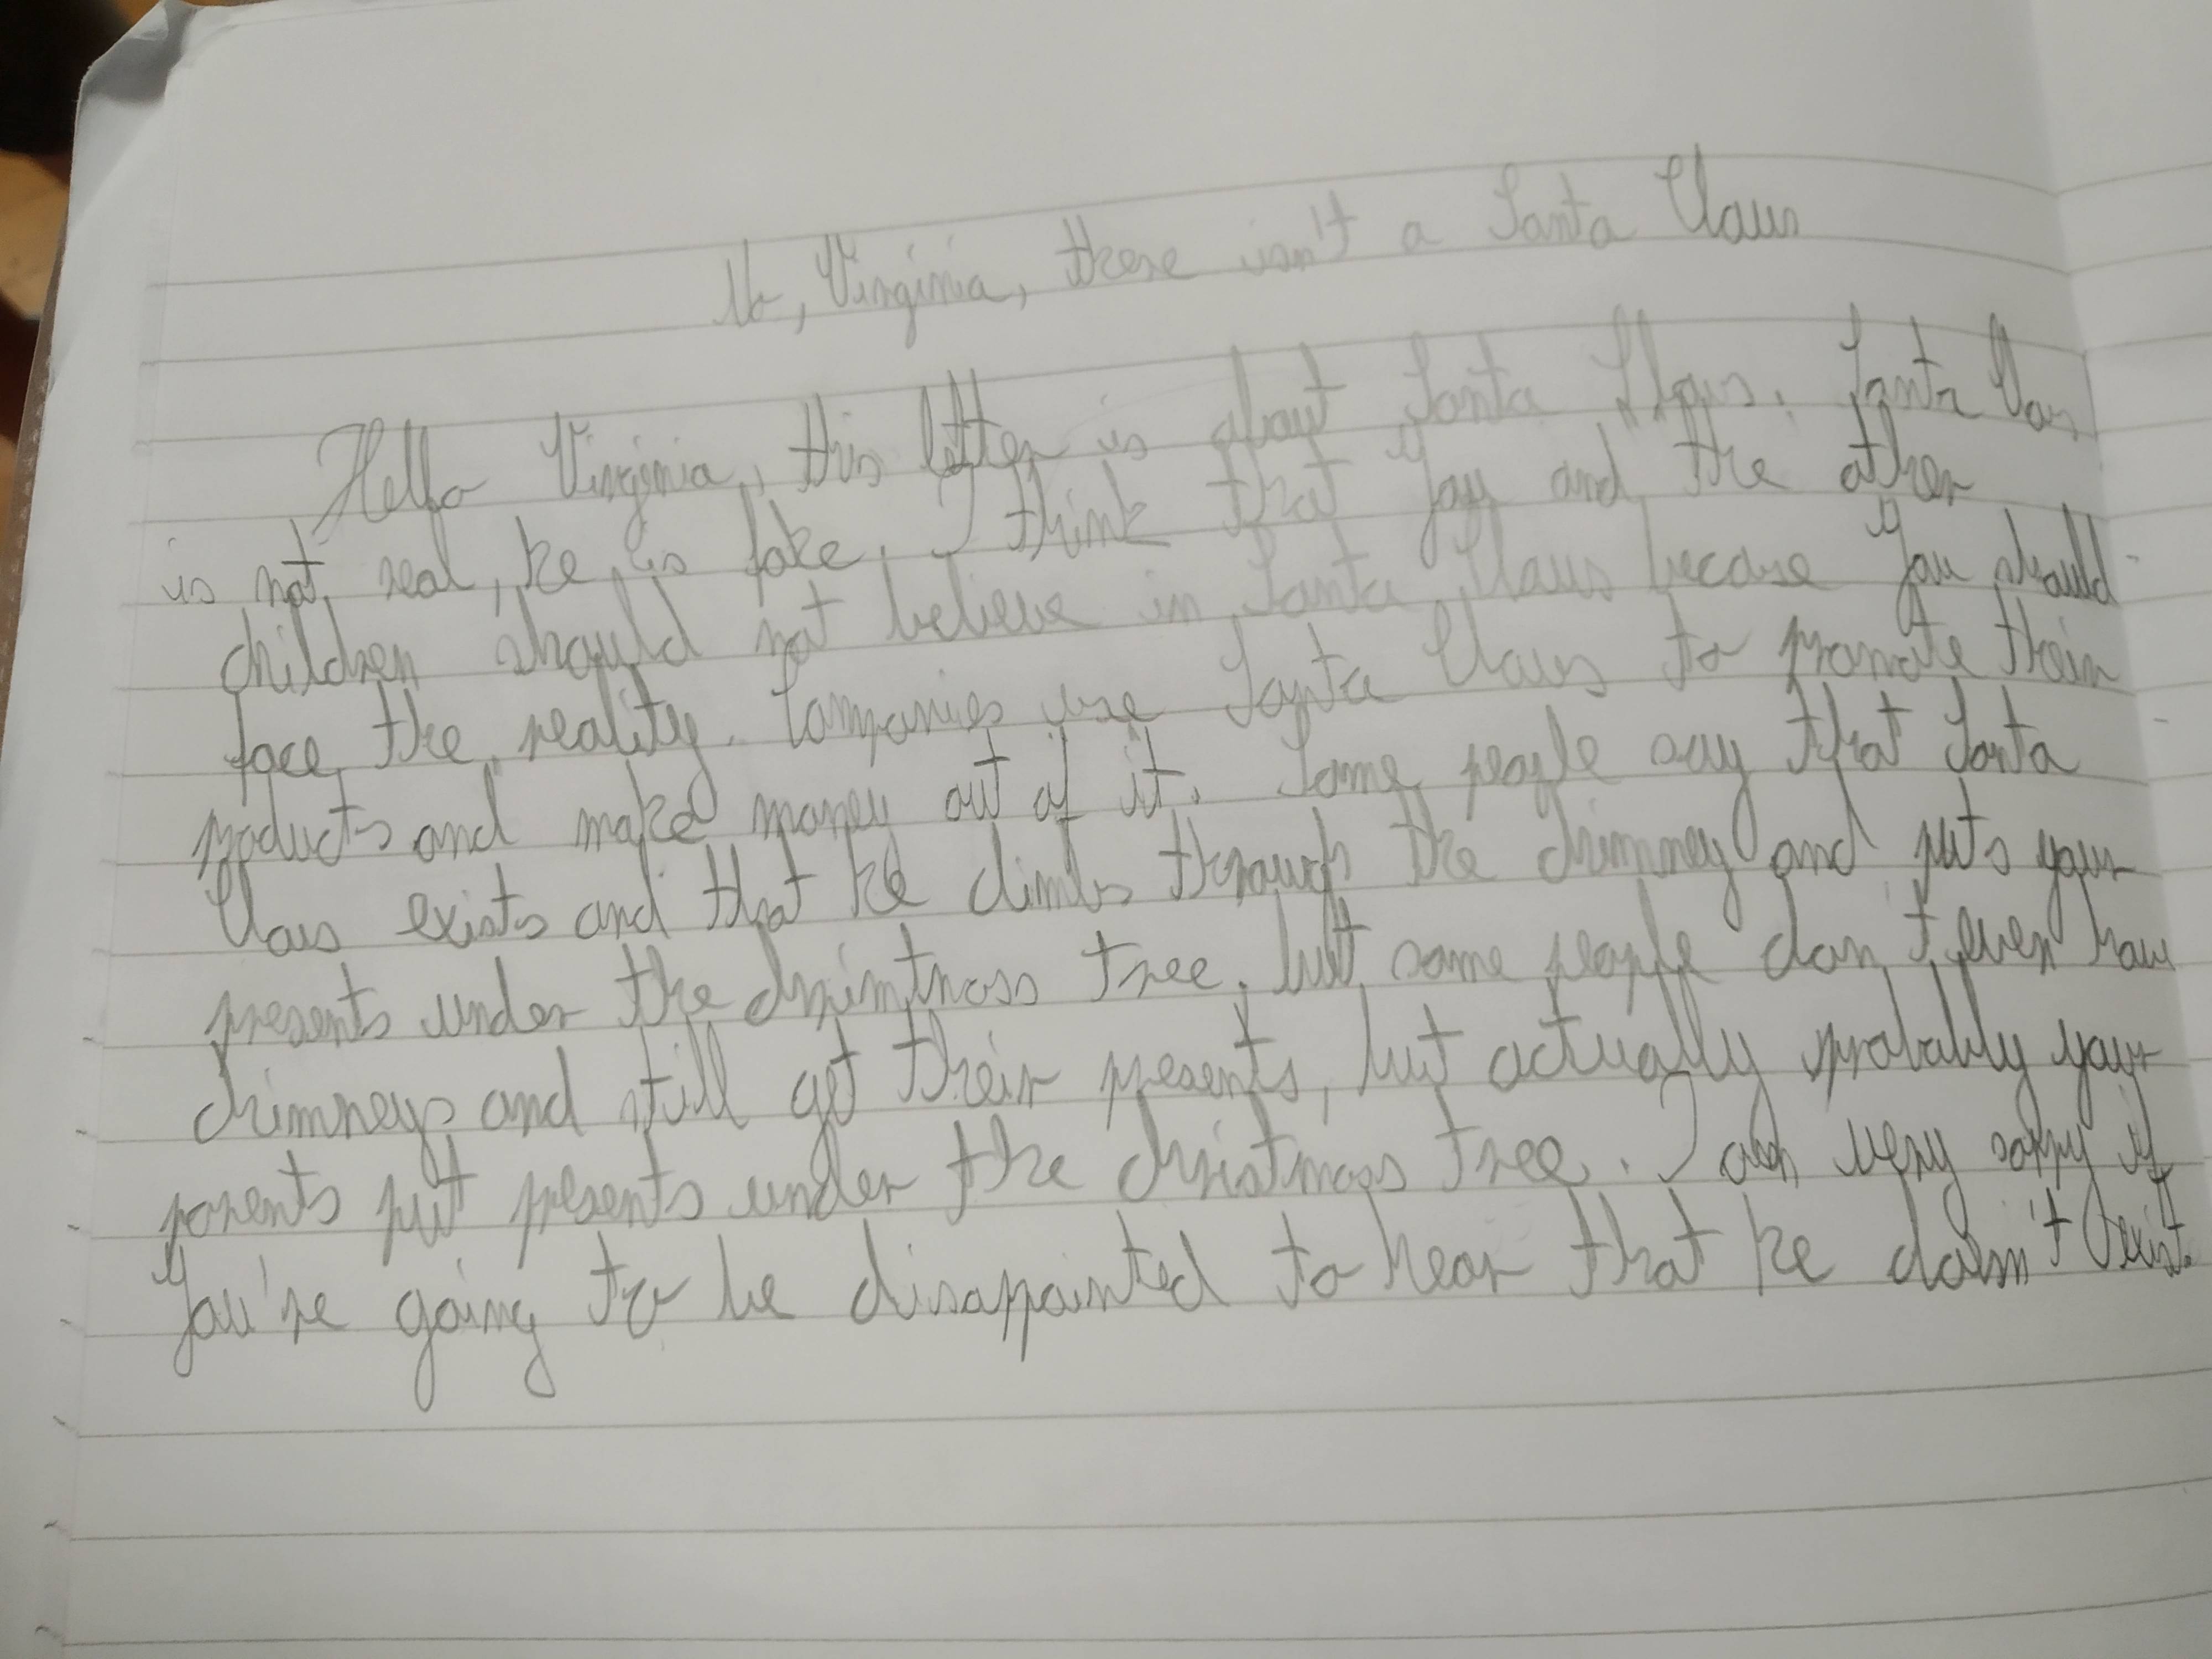 No, Virginia, there isn't a Santa Claus
Hello Virginia, this letter is about Santa Claus. Santa Claus
is not real, he is fake. I think that you and the other
children should not believe in Santa Claus because you should
face the reality. Companies use Santa Claus to promote their
products and make money out of it. Some people say that Santa
Claus exists and that he climbs through the chimney and puts your
presents under the christmass tree, but some people don't even have
chimneys and still get their presents, but actually probably your
parents put presents under the christmass tree. I am very sorry if
you're going to be disappointed to hear that he doesn't exist.